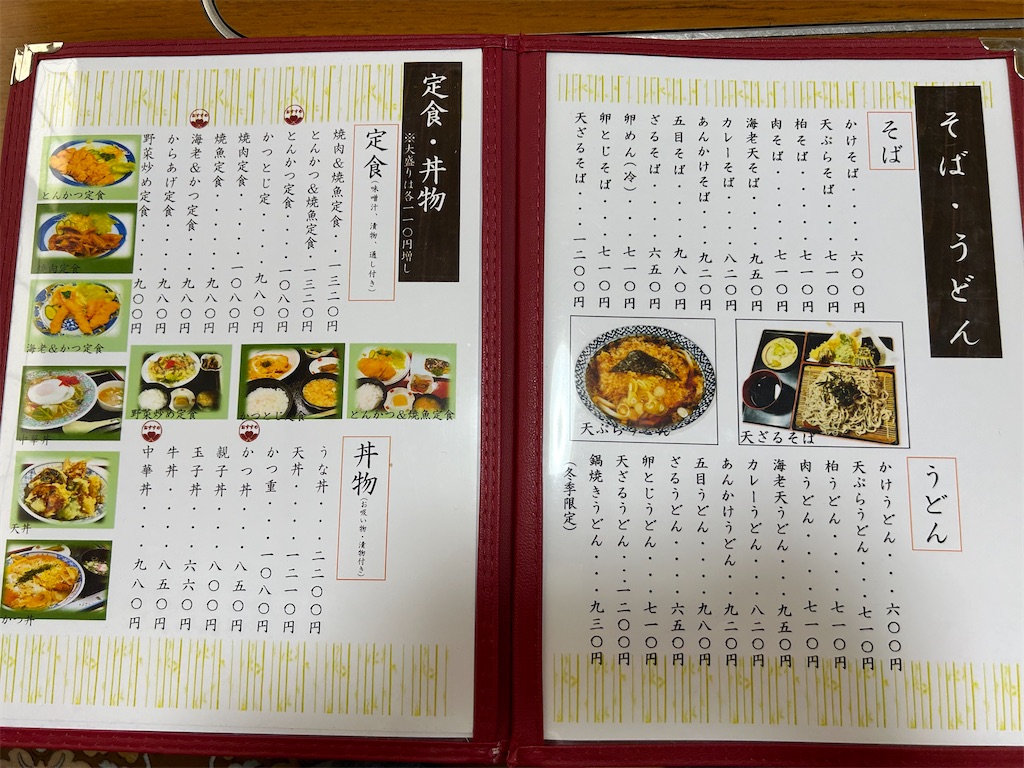 そば・うどん
そば
かけそば・・・六〇〇円
天ぷらそば・・七一〇円
柏そば・・・・七一〇円
肉そば・・・・七一〇円
海老天そば・・九五〇円
カレーそば・・八二〇円
あんかけそば・・九二〇円
五目そば・・・九八〇円
ざるそば・・・六五〇円
卵めん(冷)・・七一〇円
卵とじそば・・七一〇円
天ざるそば・・一二〇〇円
天ざるそば
天ぷらうどん
うどん
かけうどん・・・六〇〇円
天ぷらうどん・・七一〇円
柏うどん・・・・七一〇円
肉うどん・・・・七一〇円
海老天うどん・・九五〇円
カレーうどん・・八二〇円
あんかけうどん・・九二〇円
五目うどん・・・九八〇円
ざるうどん・・・六五〇円
卵とじうどん・・七一〇円
天ざるうどん・・一二〇〇円
鍋焼きうどん・・・九三〇円
(冬季限定)
定食・丼物
※大盛りは各一一〇円増し
定食(味噌汁、漬物、通し付き)
焼肉&焼魚定食・一三二〇円
とんかつ&焼魚定食・一三二〇円
おすすめ
とんかつ定食・・・一〇八〇円
かつとじ定・・・・九八〇円
焼肉定食・・・・一〇八〇円
焼魚定食・・・・・九八〇円
おすすめ
海老&かつ定食・・九八〇円
からあげ定食・・・九八〇円
野菜炒め定食・・・九八〇円
とんかつ定食
焼肉定食
海老&かつ定食
中華丼
天丼
かつ丼
とんかつ&焼魚定食
かつとじ定食
野菜炒め定食
丼物(お吸い物・漬物付き)
うな丼・・・二二〇〇円
天丼・・・・一二一〇円
かつ重・・・一〇八〇円
おすすめ
かつ丼・・・・八五〇円
親子丼・・・・八〇〇円
玉子丼・・・・六六〇円
牛丼・・・・・八五〇円
おすすめ
中華丼・・・・九八〇円